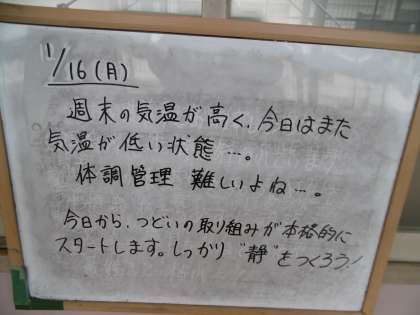 1/16(月)
週末の気温が高く、今日はまた
気温が低い状態…。
体調管理 難しいよね…。
今日から、つどいの取り組みが本格的に
スタートします。しっかり“静”をつくろう!